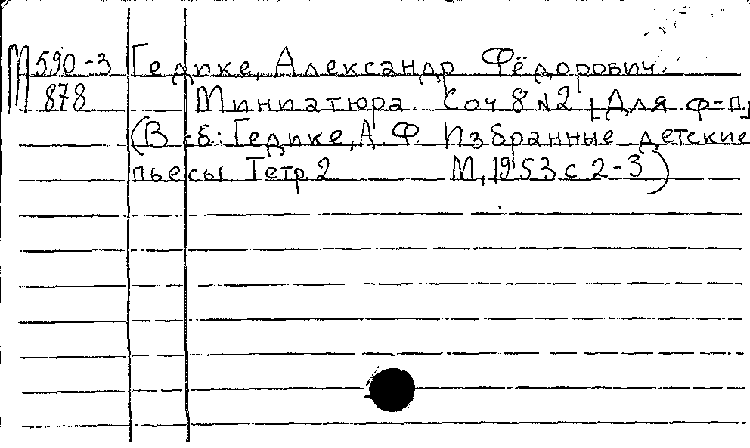 М 590-3 Гедике, Александр Фёдорович.
878 Миниатюра. Соч 8 №2 [Для ф-п]
(В сб.: Гедике, А. Ф. Избранные детские
пьесы Тетр 2 М, 1953 с 2-3)